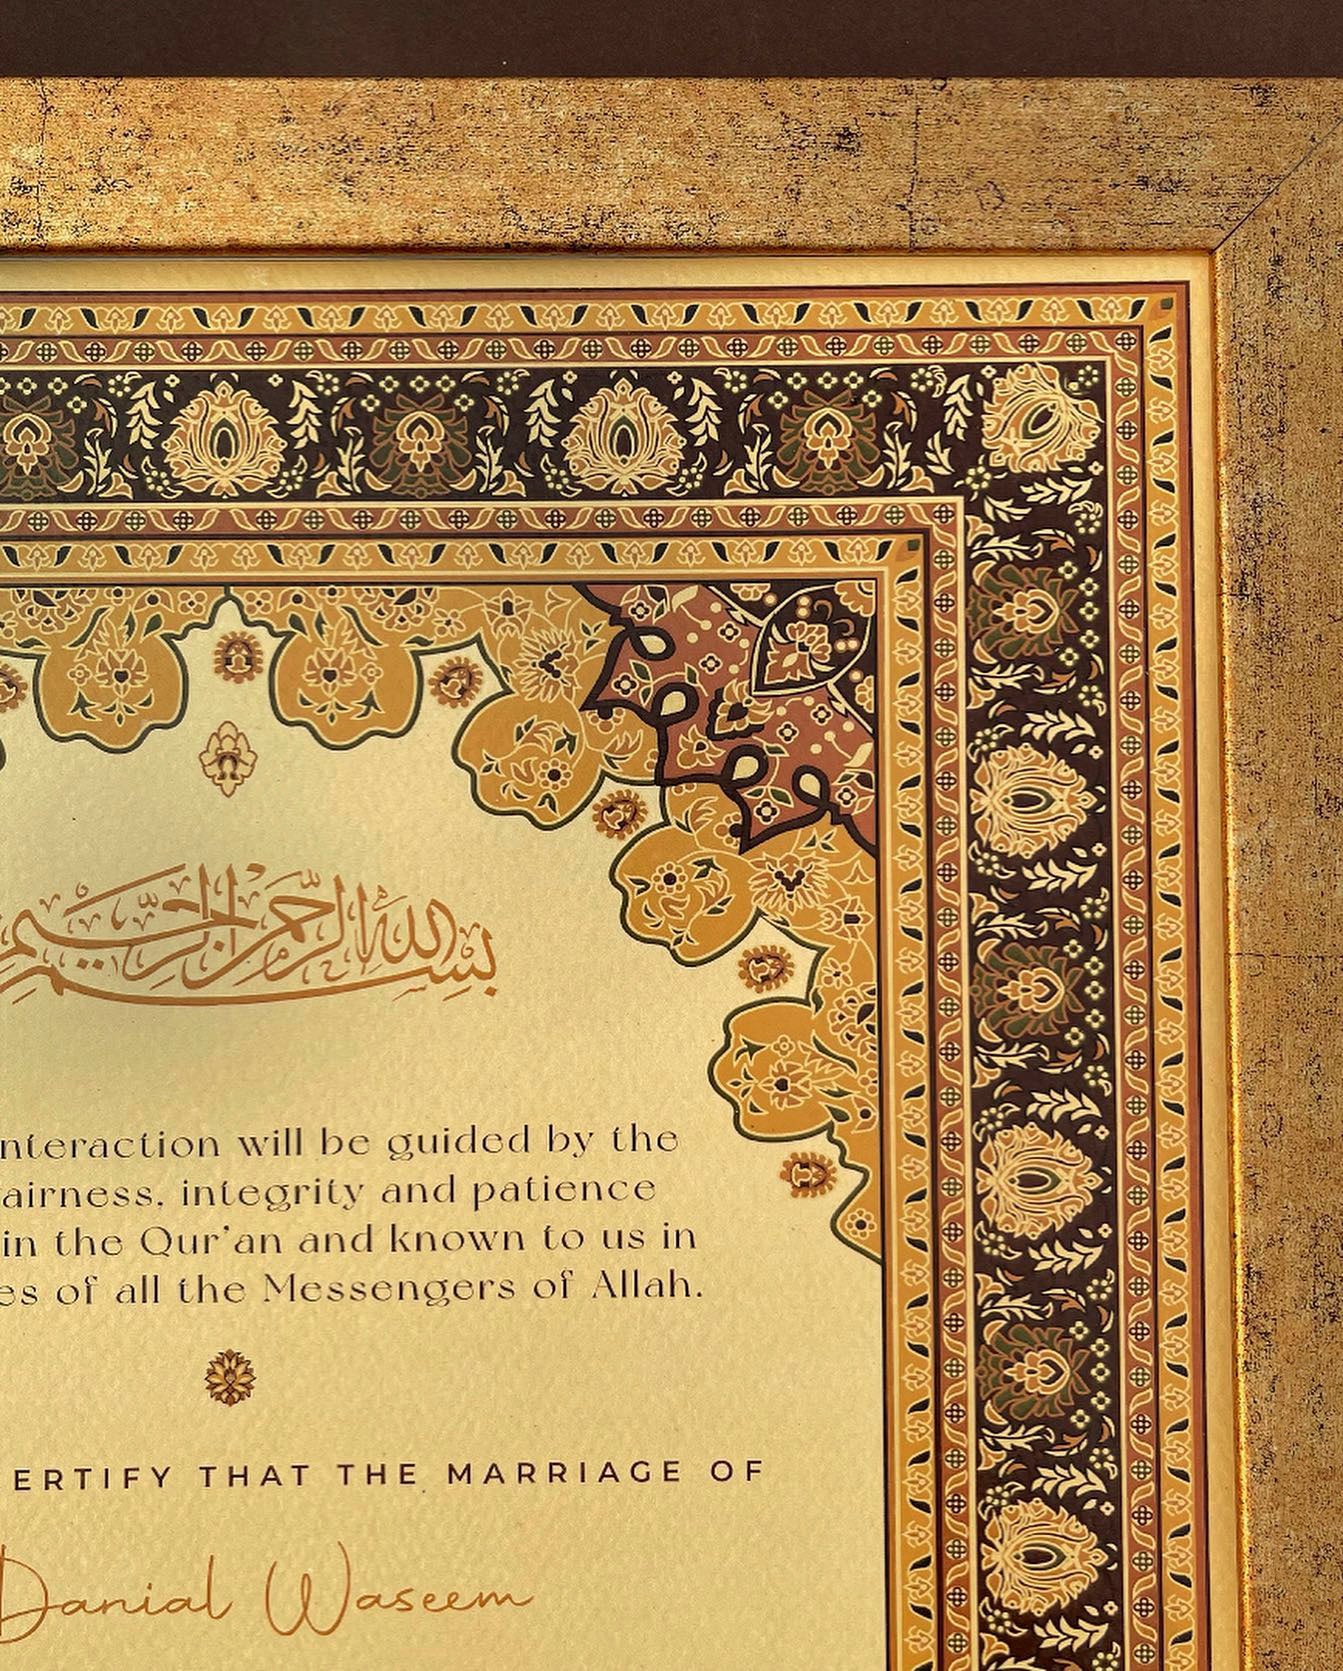 بسم الله الرحمن الرحيم
nteraction will be guided by the
airness, integrity and patience
in the Qur'an and known to us in
es of all the Messengers of Allah.
ERTIFY THAT THE MARRIAGE OF
Danial Waseem